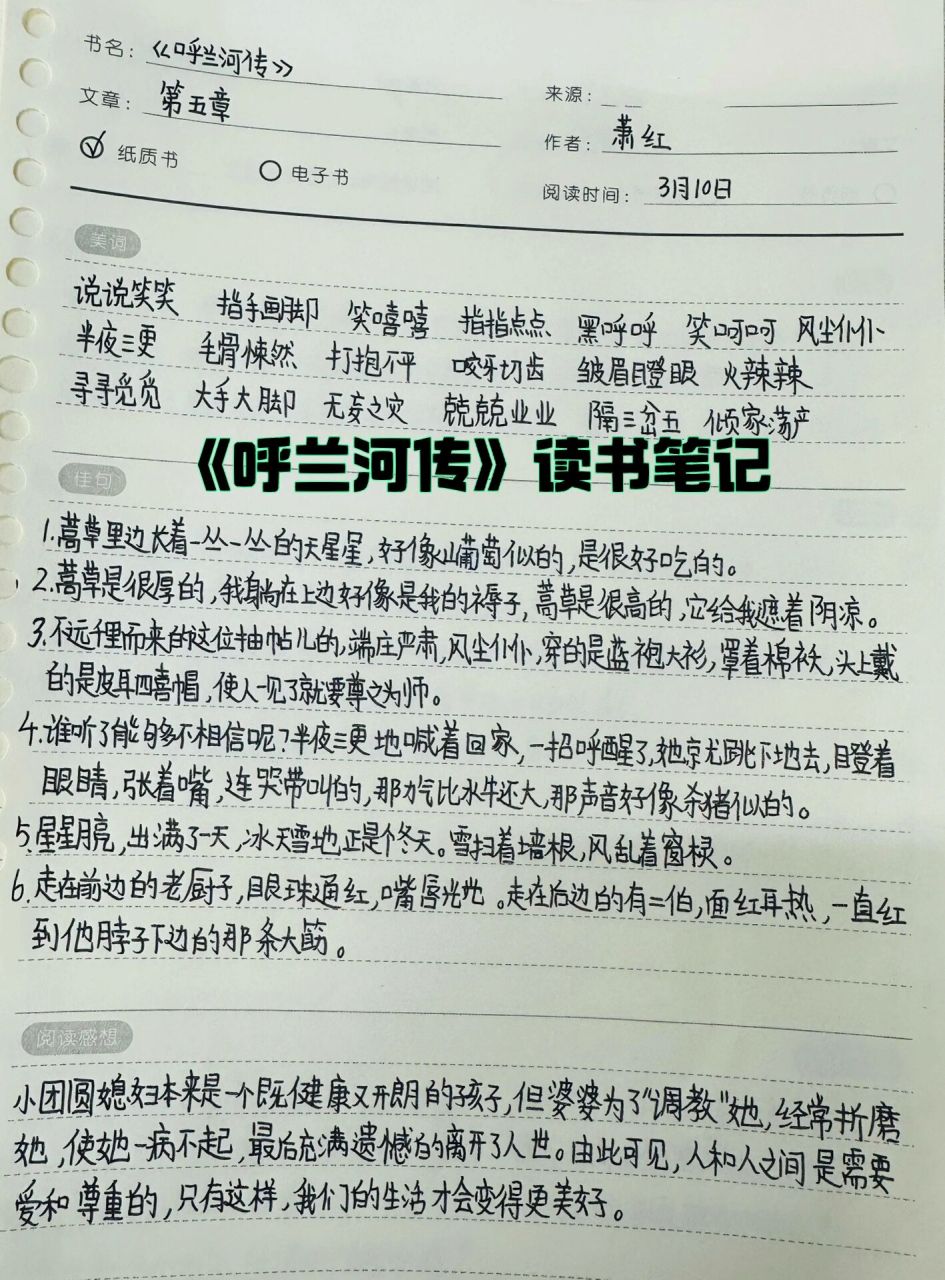 书名：《呼兰河传》
来源：
文章：第五章
作者：萧红
纸质书 电子书
阅读时间：3月10日
美词
说说笑笑 指手画脚 笑嘻嘻 指指点点 黑呼呼 笑呵呵 风尘仆仆
半夜三更 毛骨悚然 打抱不平 咬牙切齿 皱眉瞪眼 火辣辣
寻寻觅觅 大手大脚 无妄之灾 兢兢业业 隔三岔五 倾家荡产
《呼兰河传》读书笔记
佳句
1.蒿草里边长着一丛一丛的天星星，好像山葡萄似的，是很好吃的。
2.蒿草是很厚的，我躺在上边好像是我的褥子，蒿草是很高的，它给我遮着阴凉。
3.不远千里而来的这位抽帖儿的，端庄严肃，风尘仆仆，穿的是蓝袍大衫，罩着棉袄，头上戴
的是皮耳四喜帽，使人一见了就要尊之为师。
4.谁听了能够不相信呢？半夜三更地喊着回家，一招呼醒了，她就跳下地去，瞪着
眼睛，张着嘴，连哭带叫的，那力气比水牛还大，那声音好像杀猪似的。
5.星星月亮，出满了一天，冰天雪地正是个冬天。雪扫着墙根，风乱着窗棂。
6.走在前边的老厨子，眼珠通红，嘴唇光光。走在后边的有二伯，面红耳热，一直红
到他脖子下边的那条大筋。
阅读感想
小团圆媳妇本来是一个既健康又开朗的孩子，但婆婆为了“调教”她，经常折磨
她，使她一病不起，最后充满遗憾的离开了人世。由此可见，人和人之间是需要
爱和尊重的，只有这样，我们的生活才会变得更美好。